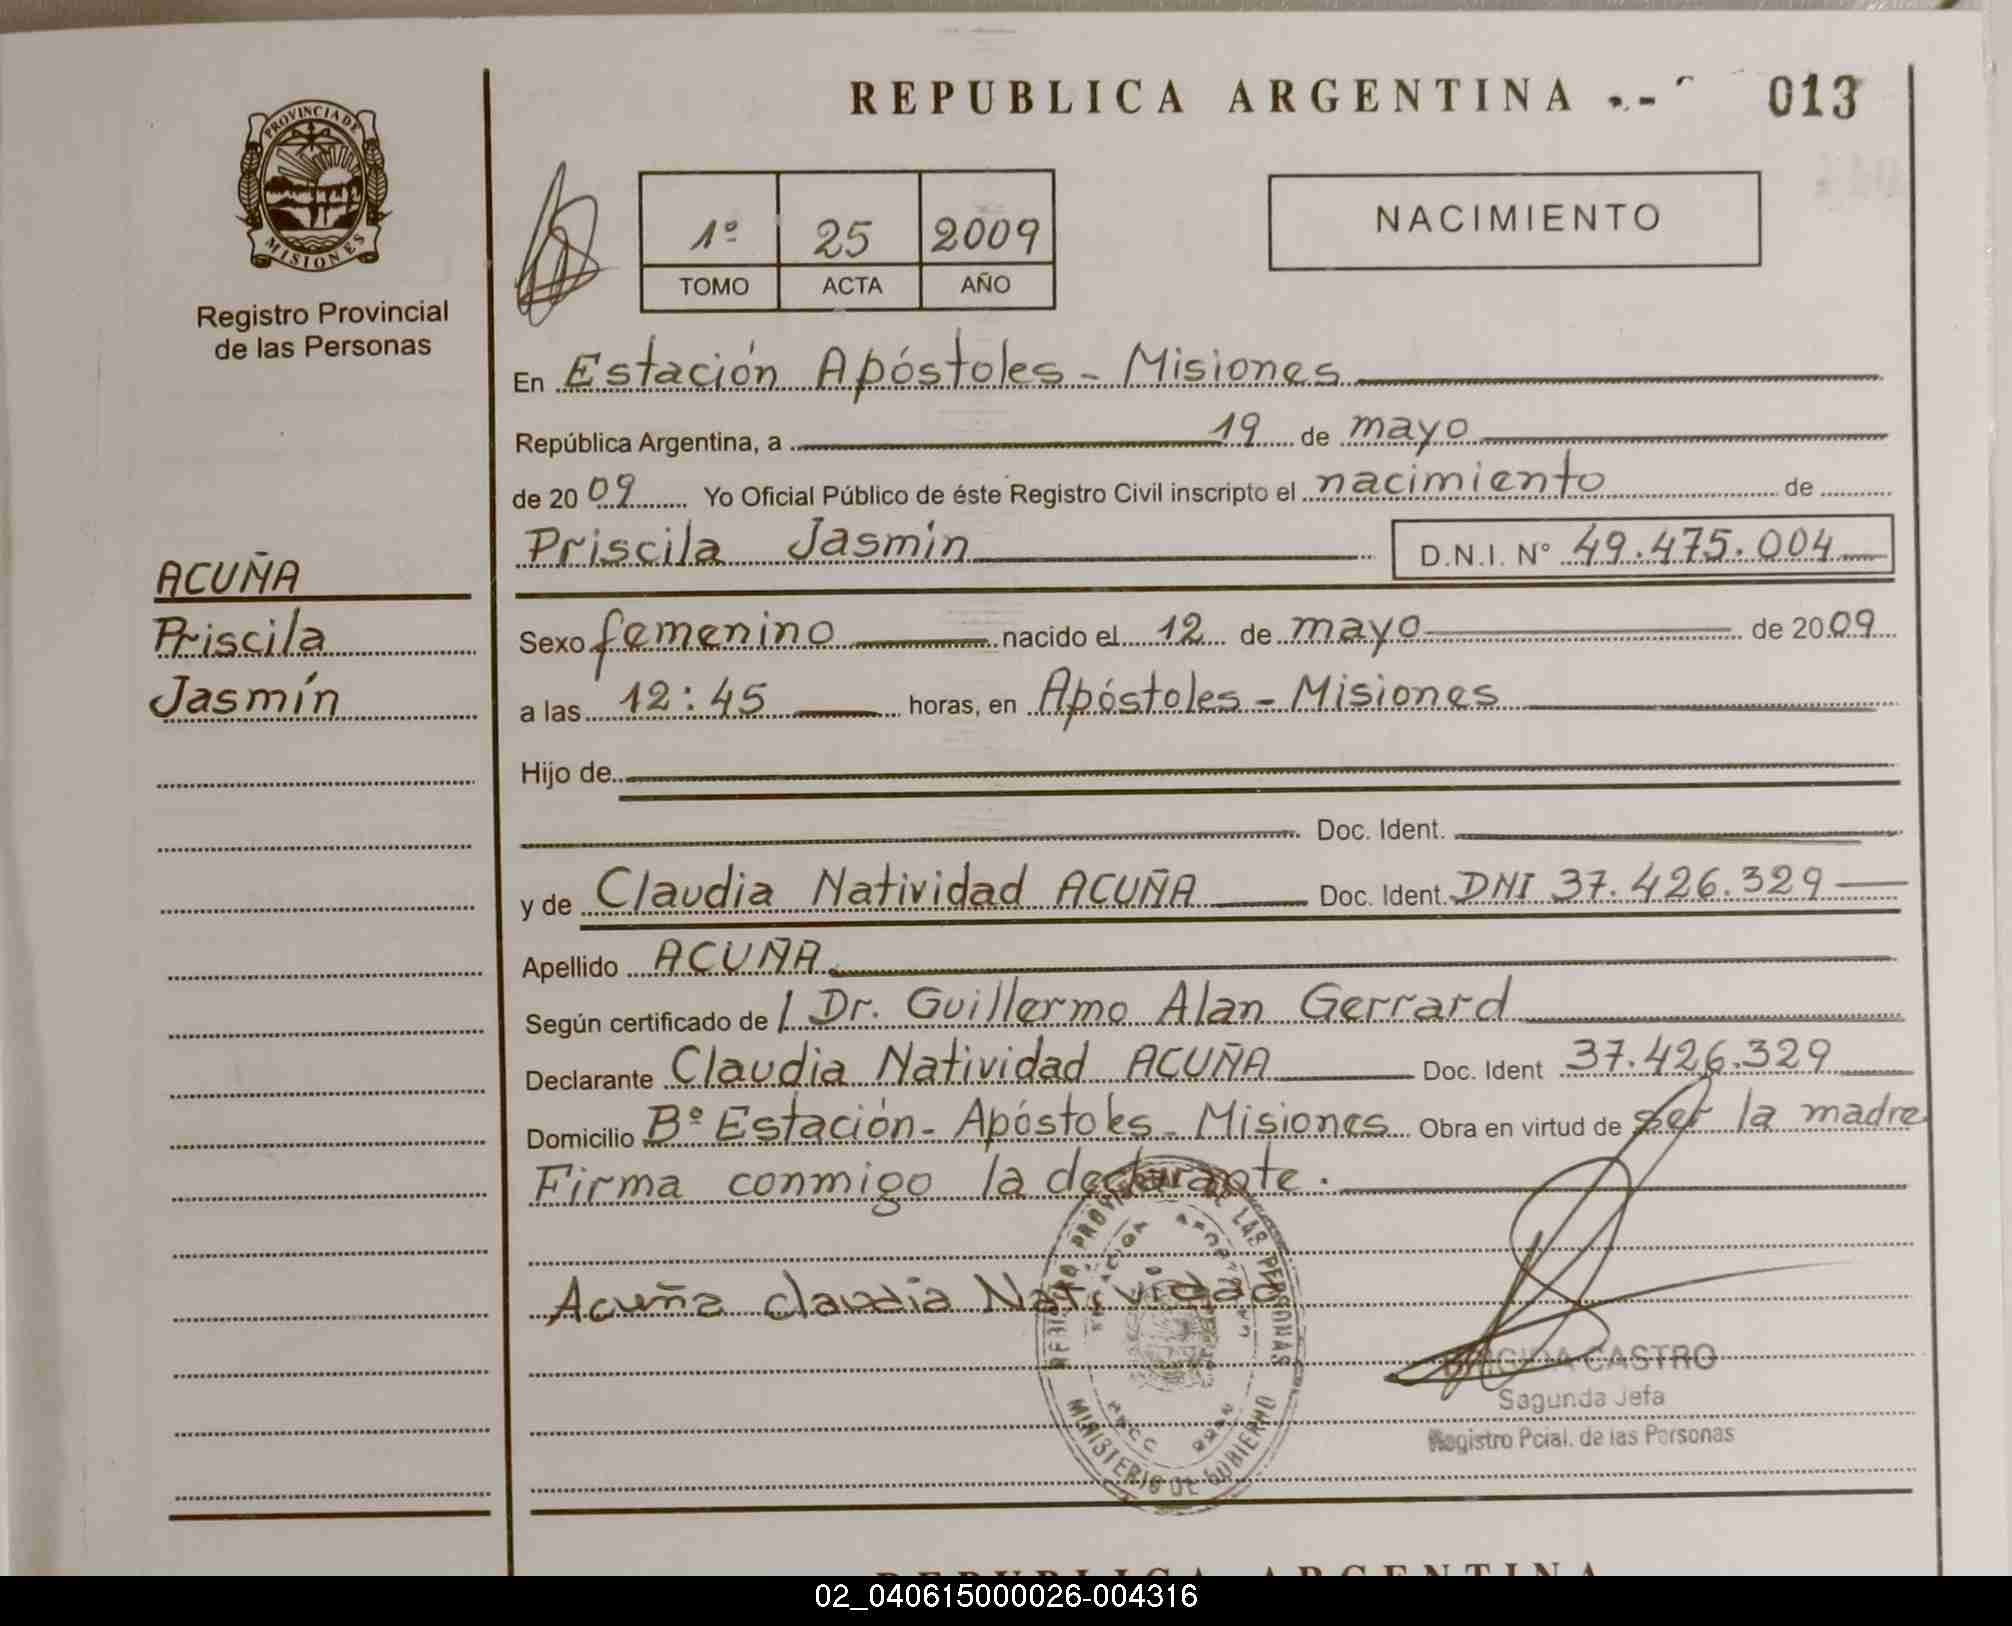 REPUBLICA ARGENTINA 013
PROVINCIA DE
MISIONES
Registro Provincial
de las Personas
1º 25 2009
TOMO ACTA AÑO
NACIMIENTO
En Estación Apóstoles - Misiones
República Argentina, a 19 de mayo
de 2009 Yo Oficial Público de éste Registro Civil inscripto el nacimiento de
Priscila Jasmín D.N.I. Nº 49.475.004
ACUÑA
Priscila
Jasmín
Sexo femenino nacido el 12 de mayo de 2009
a las 12:45 horas, en Apóstoles - Misiones
Hijo de
Doc. Ident.
y de Claudia Natividad ACUÑA Doc. Ident. DNI 37.426.329
Apellido ACUÑA
Según certificado de / Dr. Guillermo Alan Gerrard
Declarante Claudia Natividad ACUÑA Doc. Ident 37.426.329
Domicilio Bº Estación - Apóstoles - Misiones Obra en virtud de ser la madre
Firma conmigo la declarante.
Acuña claudia Natividad
REGISTRO PROVINCIAL DE LAS PERSONAS
MINISTERIO DE GOBIERNO
CASTRO
Segunda Jefa
Registro Pcial. de las Personas
REPUBLICA ARGENTINA
02_040615000026-004316